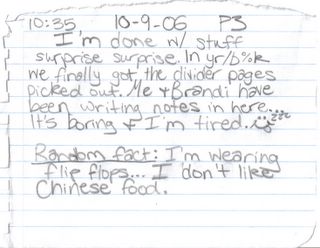 10:35 10-9-06 P3
I'm done w/ stuff
surprise surprise. In yr/b%k
we finally got the divider pages
picked out. Me + Brandi have
been writing notes in here...
It's boring + I'm tired. zzz
Random fact: I'm wearing
flip flops... I don't like
Chinese food.